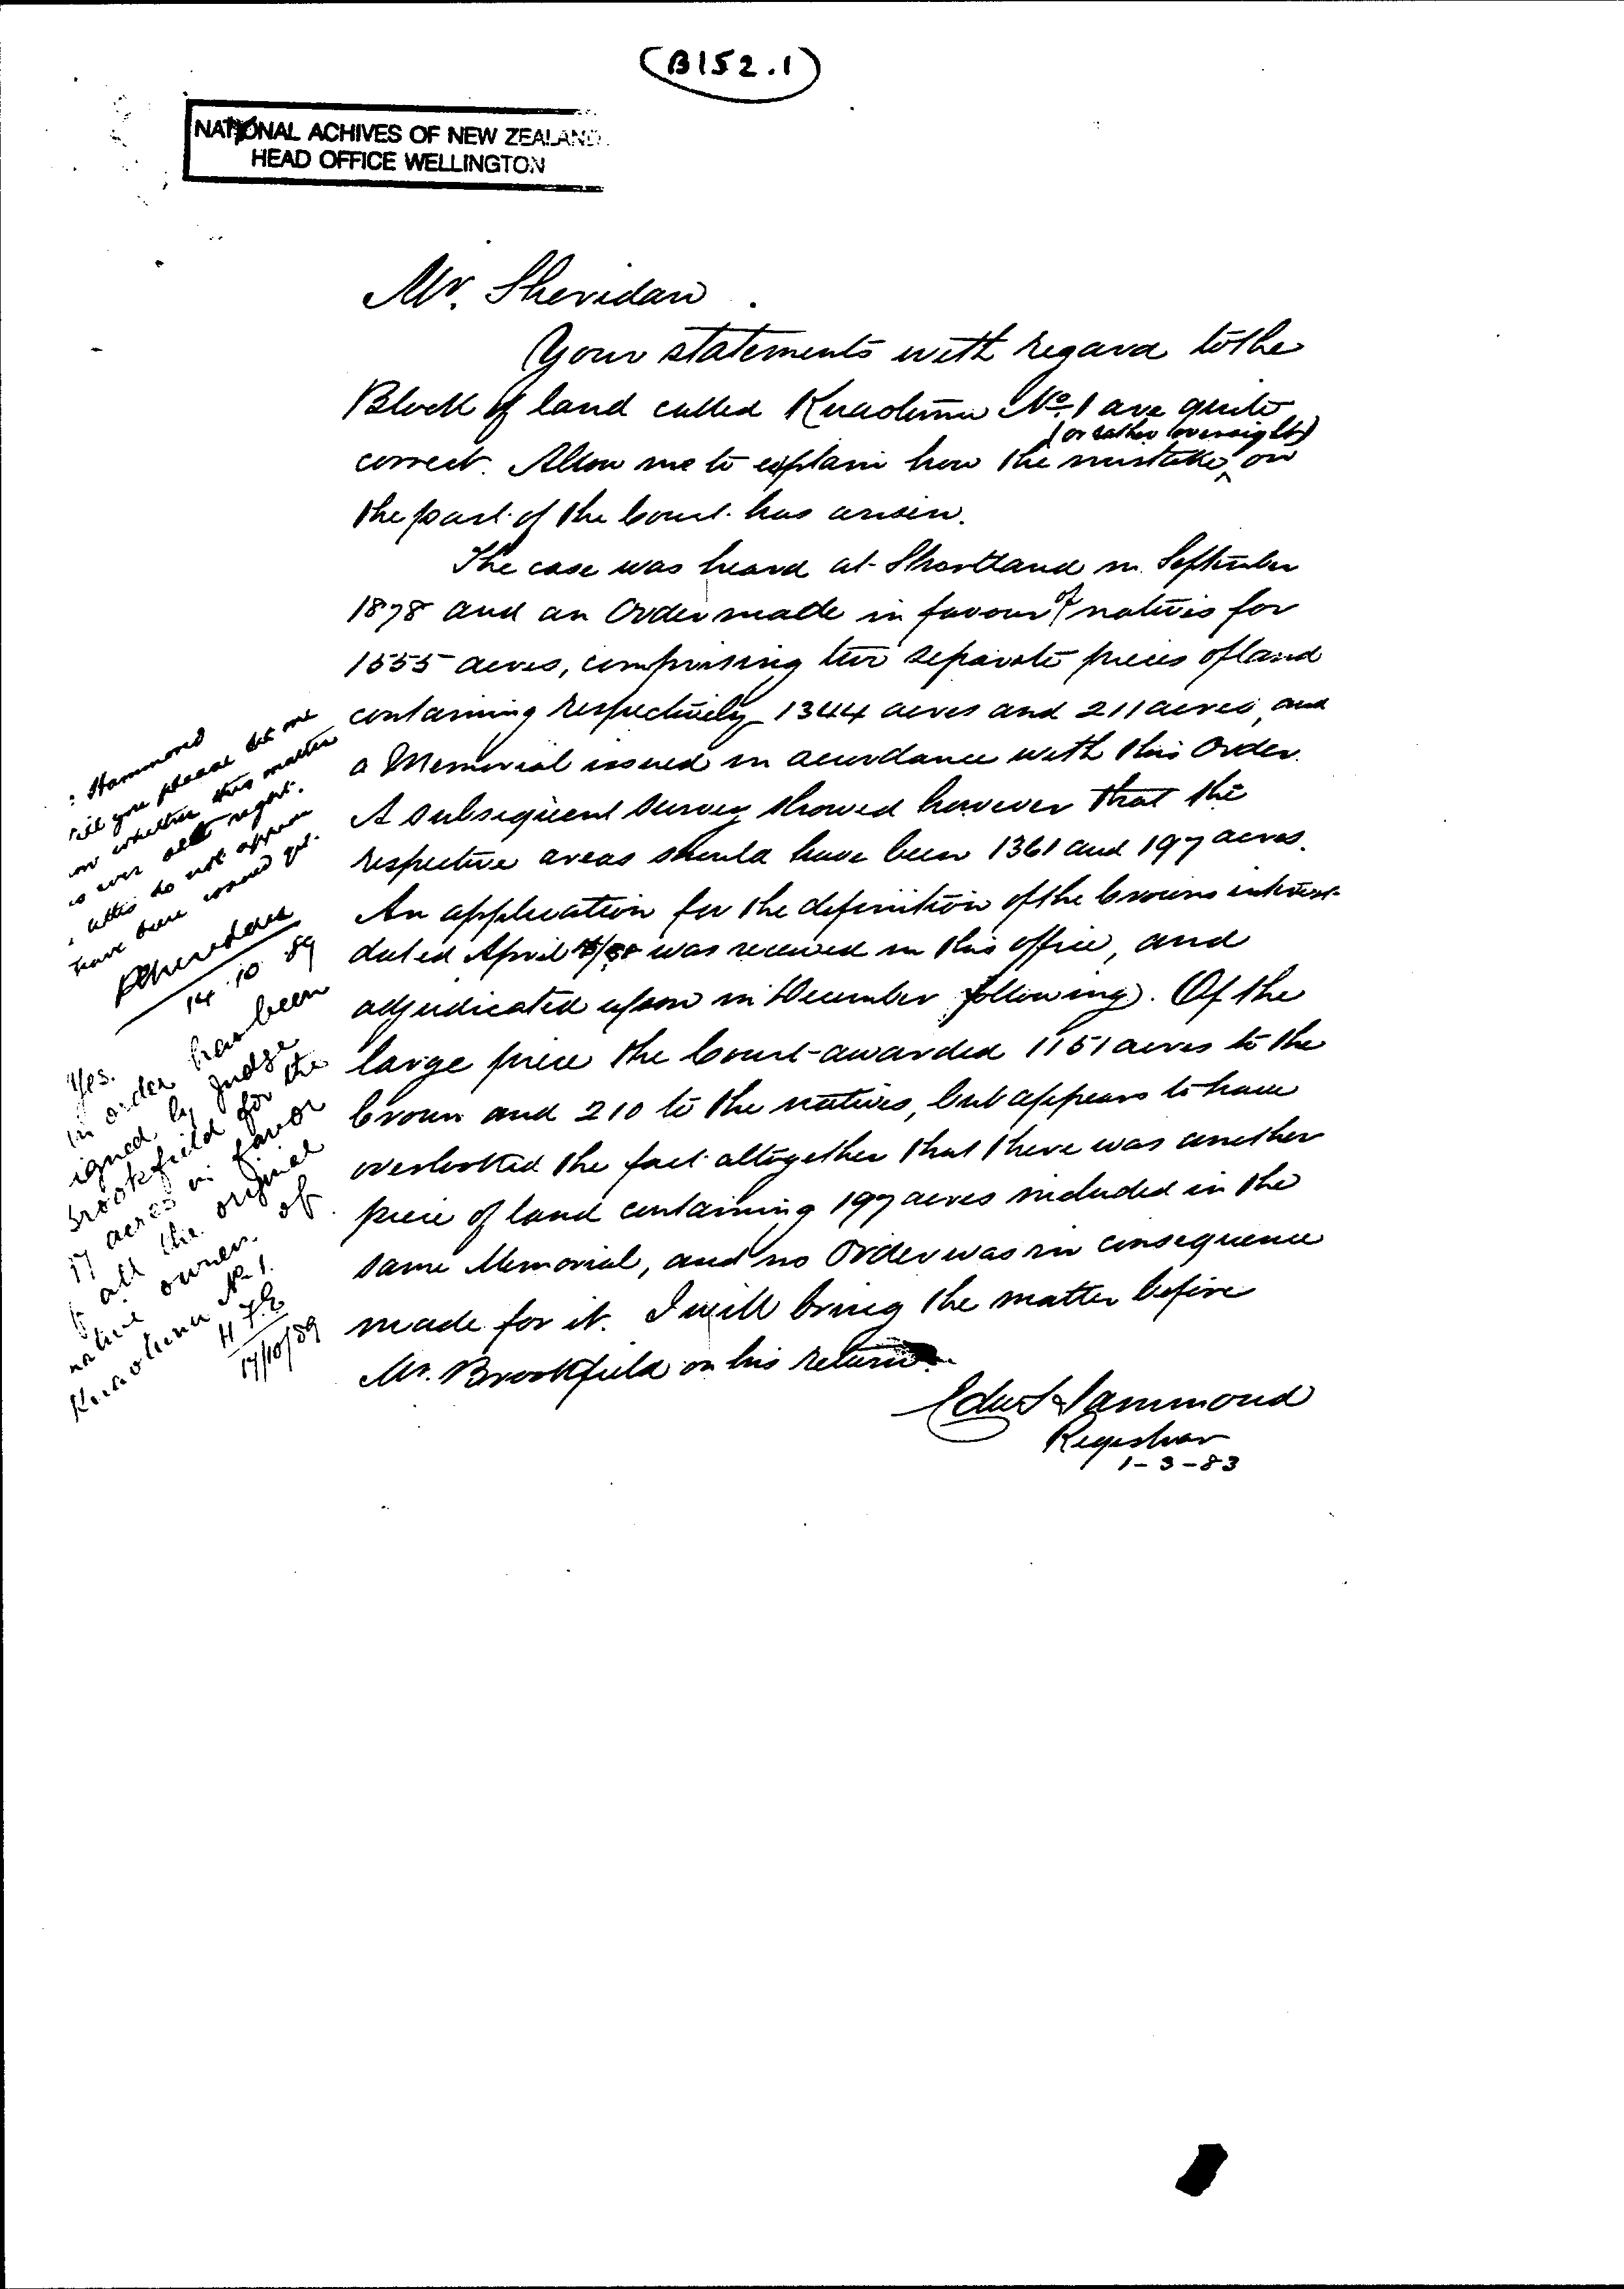 (B152.1)
NATIONAL ACHIVES OF NEW ZEALAND
HEAD OFFICE WELLINGTON
Mr. Sheridan.
Your statements with regard to the
Block of land called Kuaotunu No. 1 are quite
(or rather oversight)
correct. Allow me to explain how the mistake on
the part of the Court has arisen.
The case was heard at Shortland in September
1878 and an Order made in favour of natives for
1555 acres, comprising two separate pieces of land
containing respectively 1344 acres and 211 acres, and
a Memorial issued in accordance with this Order.
A subsequent survey showed however that the
respective areas should have been 1361 and 197 acres.
An application for the definition of the Crowns interest
dated April was received in this office, and
adjudicated upon in December following. Of the
large piece the Court awarded 1151 acres to the
Crown and 210 to the natives, but appears to have
overlooked the fact altogether that there was another
piece of land containing 197 acres included in the
same Memorial, and no Order was in consequence
made for it. I will bring the matter before
Mr. Brookfield on his return.
Edw Hammond
Registrar
1-3-83
: Hammond
ill you please let me
ow whether this matter
s ever set right.
titles do not appear
have been issued yet.
PSheridan
14.10.89
Yes.
An order has been
igned by Judge
Brookfield for the
17 acres in favor
of all the original
native owners of
Kuaotunu No 1.
H.F.E
17/10/89